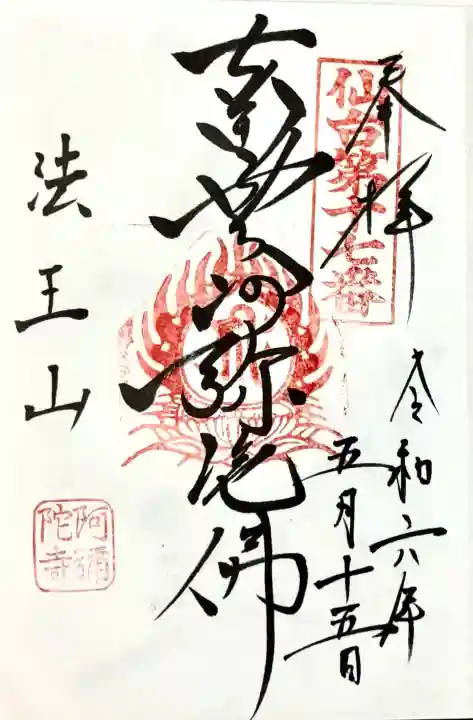 奉拝
仙台第十七番
令和六年
五月十五日
阿弥陀佛
法王山
阿彌陀寺